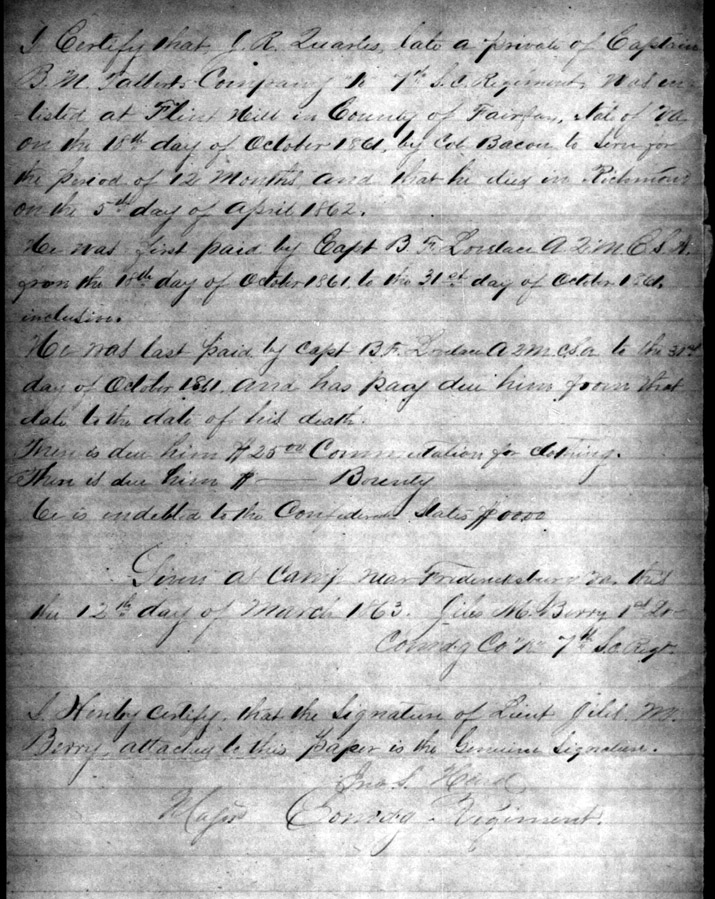 I Certify that J. R. Quarles, late a private of Captain
B. M. Talberts Company K 7th S.C. Regiment, was en-
listed at Flint Hill in County of Fairfax, State of Va
on the 18th day of October 1861, by Col Bacon to serve for
the period of 12 Months, and that he died in Richmond
on the 5th day of April 1862.
He was first paid by Capt B F. Lovelace A.Q.M.C.S.A.
from the 18th day of October 1861, to the 31st day of October 1861,
inclusive.
He was last paid by Capt B.F. Lovelace A Q M C.S.A to the 31st
day of October 1861, and has pay due him from that
date to the date of his death.
There is due him $25 00 Commutation for clothing.
There is due him $ —— Bounty
he is indebted to the Confederate States $0000
Given at Camp near Fredericksburg va. this
the 12th day of March 1863. Giles M. Berry 1st Lt
Comdg Co K 7th S.C. Regt.
I Hereby certify, that the Signature of Lieut Giles M.
Berry, attached to this paper is the Genuine Signature.
Jno S. Hard
Major Comdg Regiment.